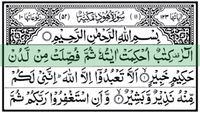 (١١) سُوْرَةُ هُوْدٍ مَكِّيَّةٌ (٥٢)
بِسْمِ اللّٰهِ الرَّحْمٰنِ الرَّحِيْمِ
الٓرٰ كِتٰبٌ اُحْكِمَتْ اٰيٰتُهٗ ثُمَّ فُصِّلَتْ مِنْ لَّدُنْ
حَكِيْمٍ خَبِيْرٍ اَلَّا تَعْبُدُوْٓا اِلَّا اللّٰهَ اِنَّنِيْ لَكُمْ
مِّنْهُ نَذِيْرٌ وَّبَشِيْرٌ وَّاَنِ اسْتَغْفِرُوْا رَبَّكُمْ ثُمَّ